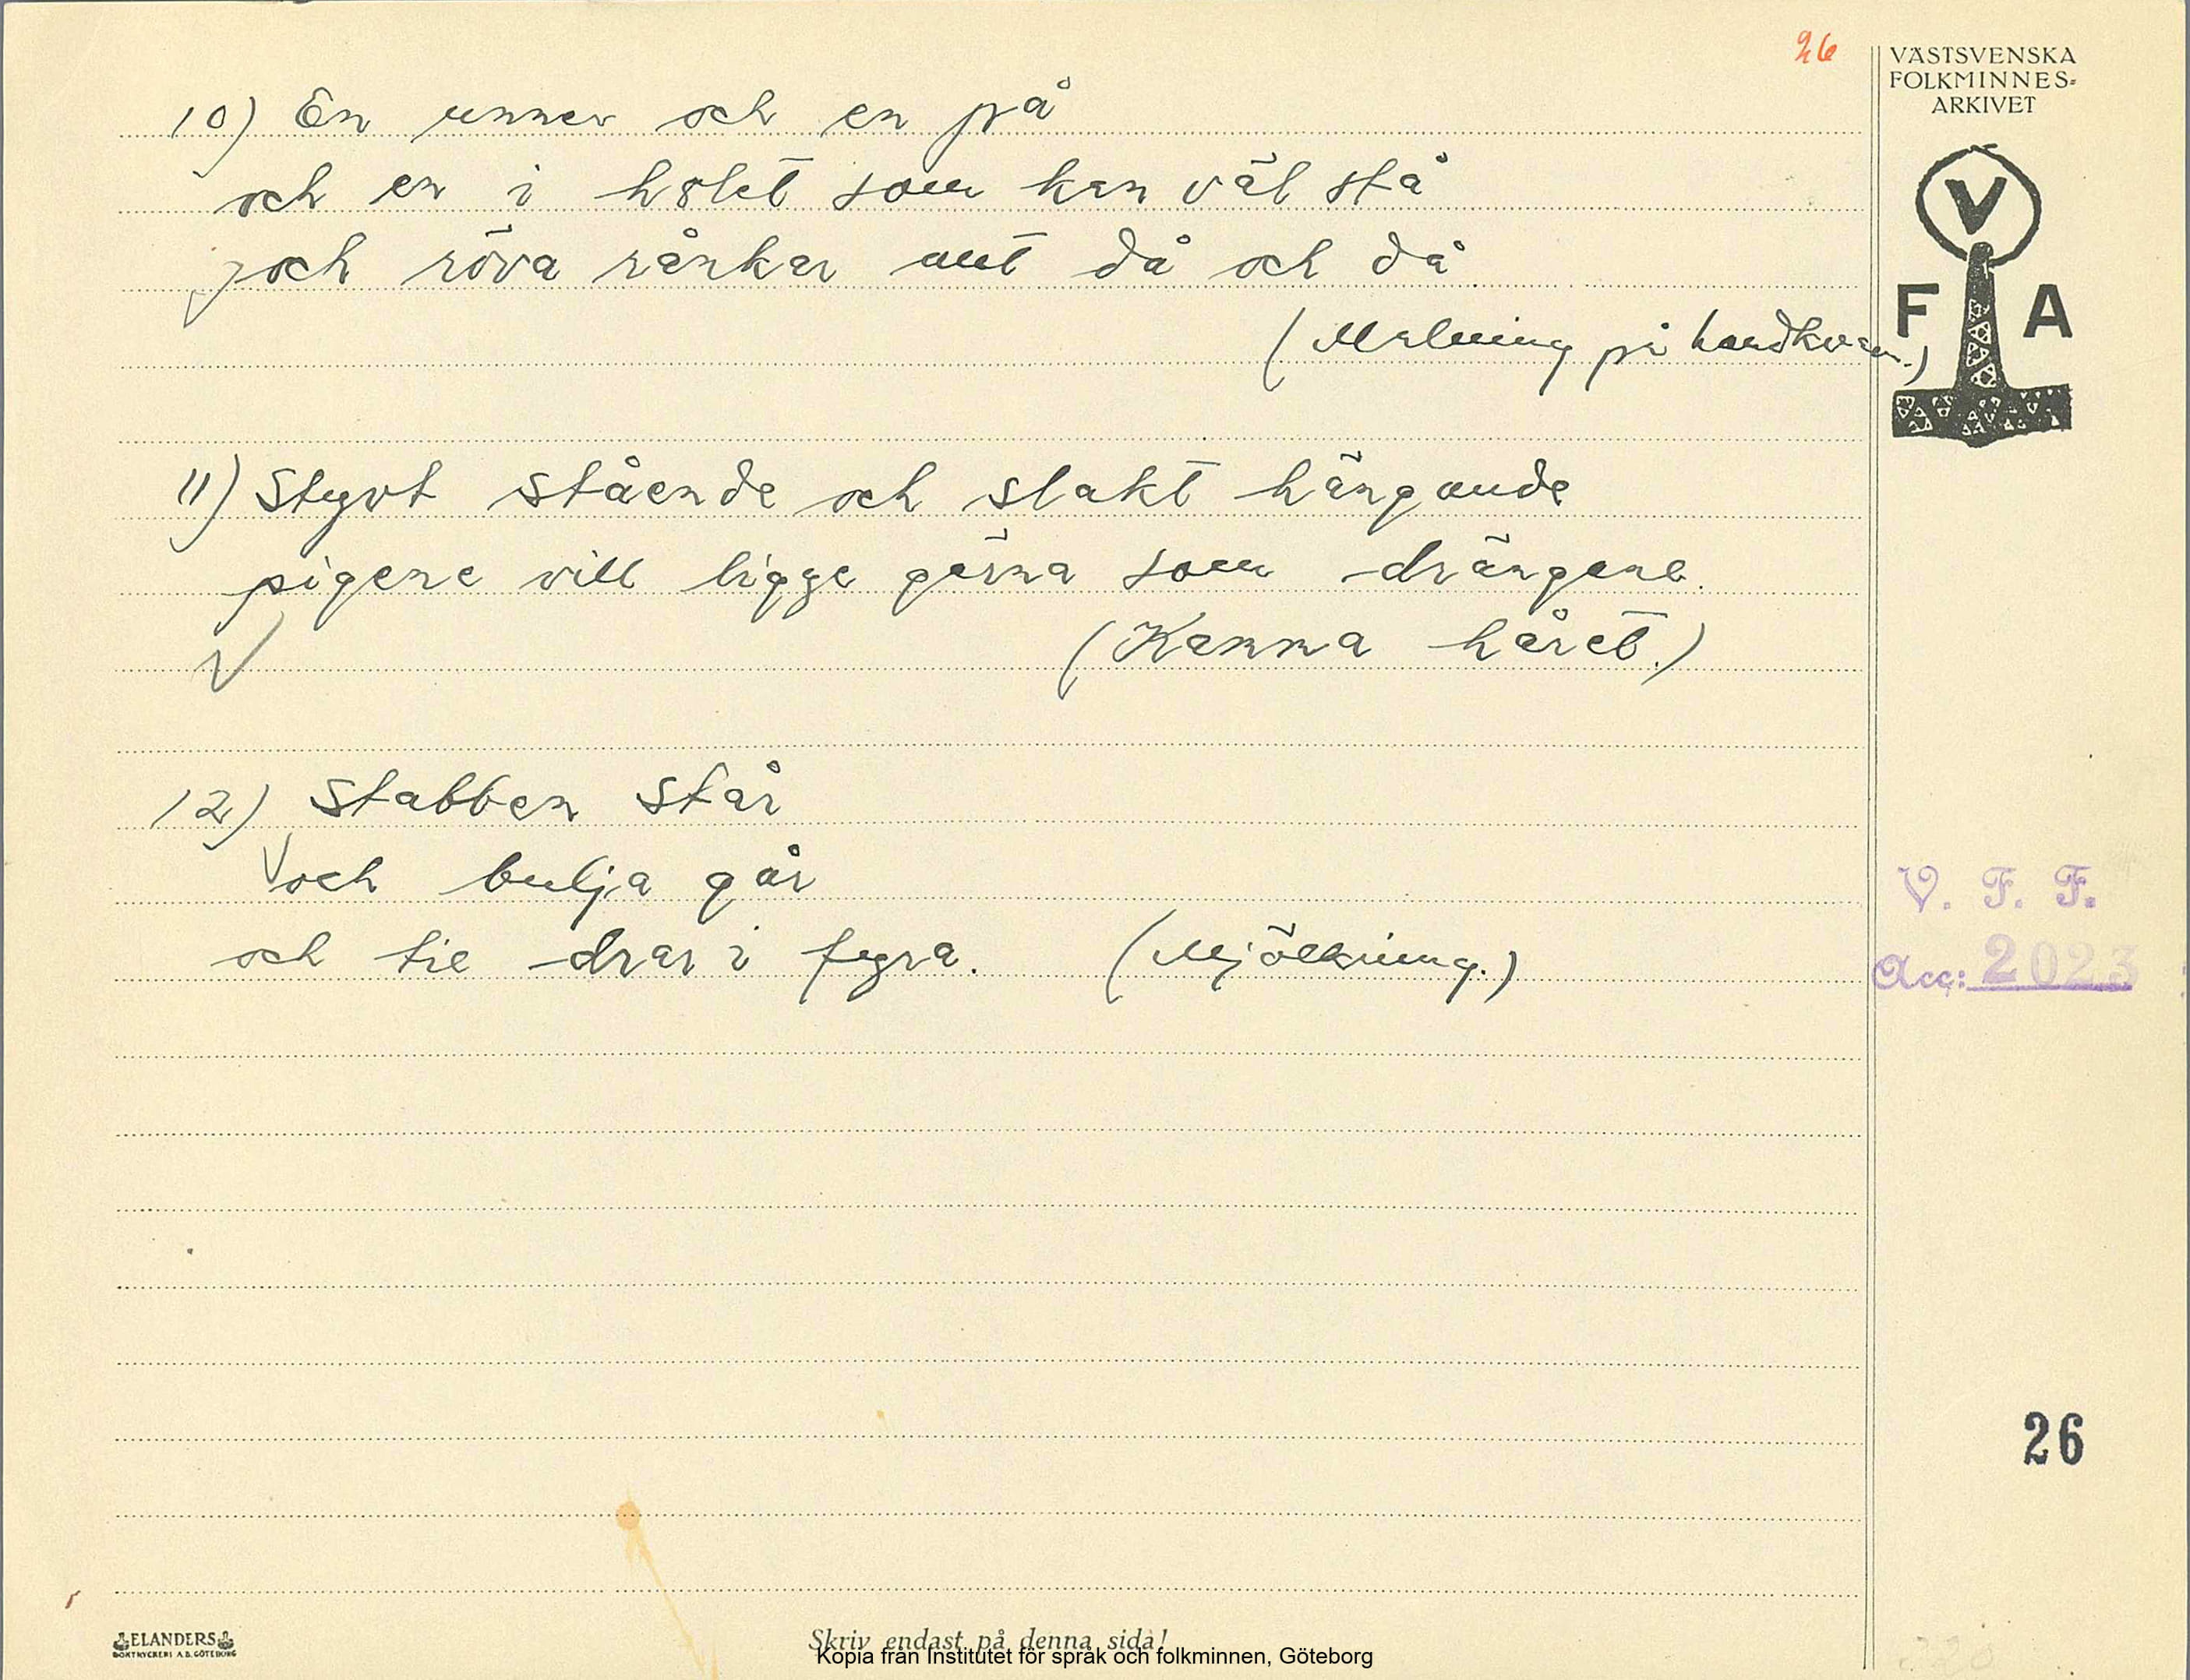 26
VÄSTSVENSKA
FOLKMINNES-
ARKIVET
V
F A
10) En unner och en på
och en i hålet som kan väl stå
och röva rånkar aut då och då
(Malning på handkvarn.)
11) Styvt stående och slakt hängande
pigene vill ligge gärna som drängene.
(Kamma håret.)
12) Stabben står
och bulja går
och tie drar i fyra. (Mjölkning.)
V. F. F.
Acc: 2023
26
ELANDERS
BOKTRYCKERI A.B. GÖTEBORG
Skriv endast på denna sida!
Kopia från Institutet för språk och folkminnen, Göteborg